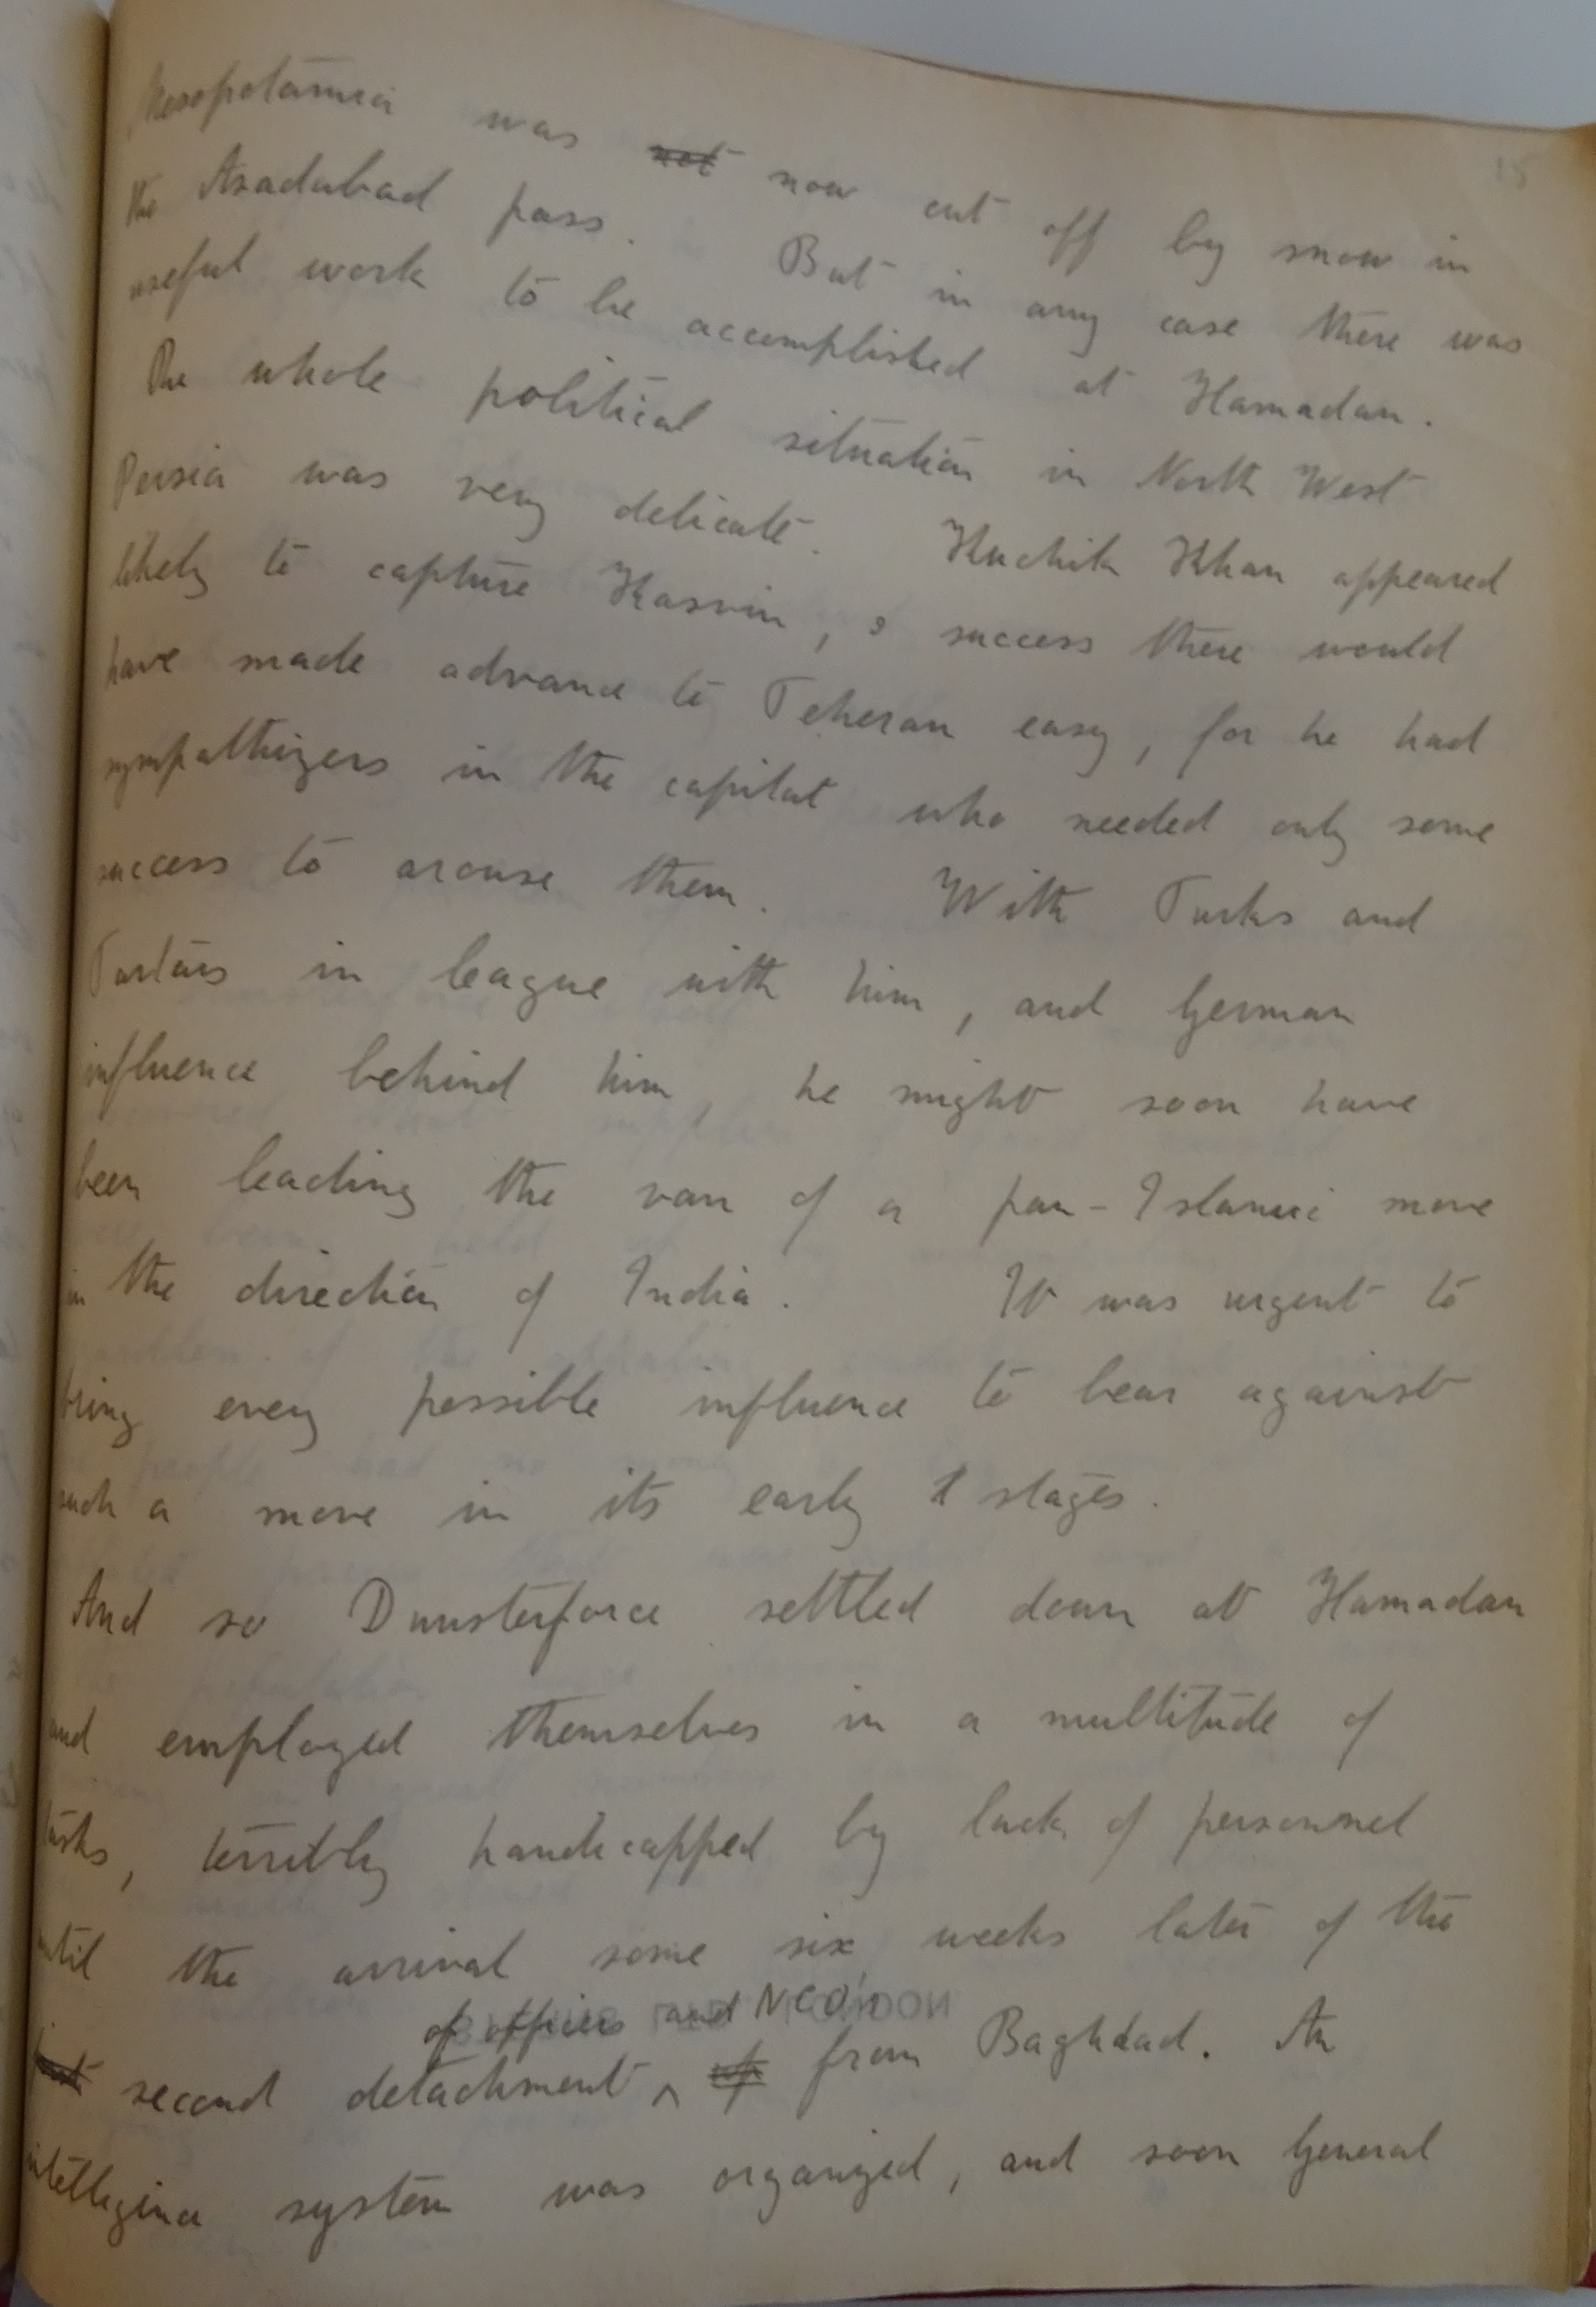 15
Mesopotamia was not now cut off by snow in
the Asadabad pass. But in any case there was
useful work to be accomplished at Hamadan.
The whole political situation in North West
Persia was very delicate. Kuchik Khan appeared
likely to capture Kasvin, & success there would
have made advance to Teheran easy, for he had
sympathizers in the capital who needed only some
success to arouse them. With Turks and
Tartars in league with him, and German
influence behind him, he might soon have
been leading the van of a pan-Islamic move
in the direction of India. It was urgent to
bring every possible influence to bear against
such a move in its early stages.
And so Dunsterforce settled down at Hamadan
and employed themselves in a multitude of
tasks, terribly handicapped by lack of personnel
until the arrival some six weeks later of the
of officers and NCO's
first second detachment ^ up from Baghdad. An
intelligence system was organized, and soon General